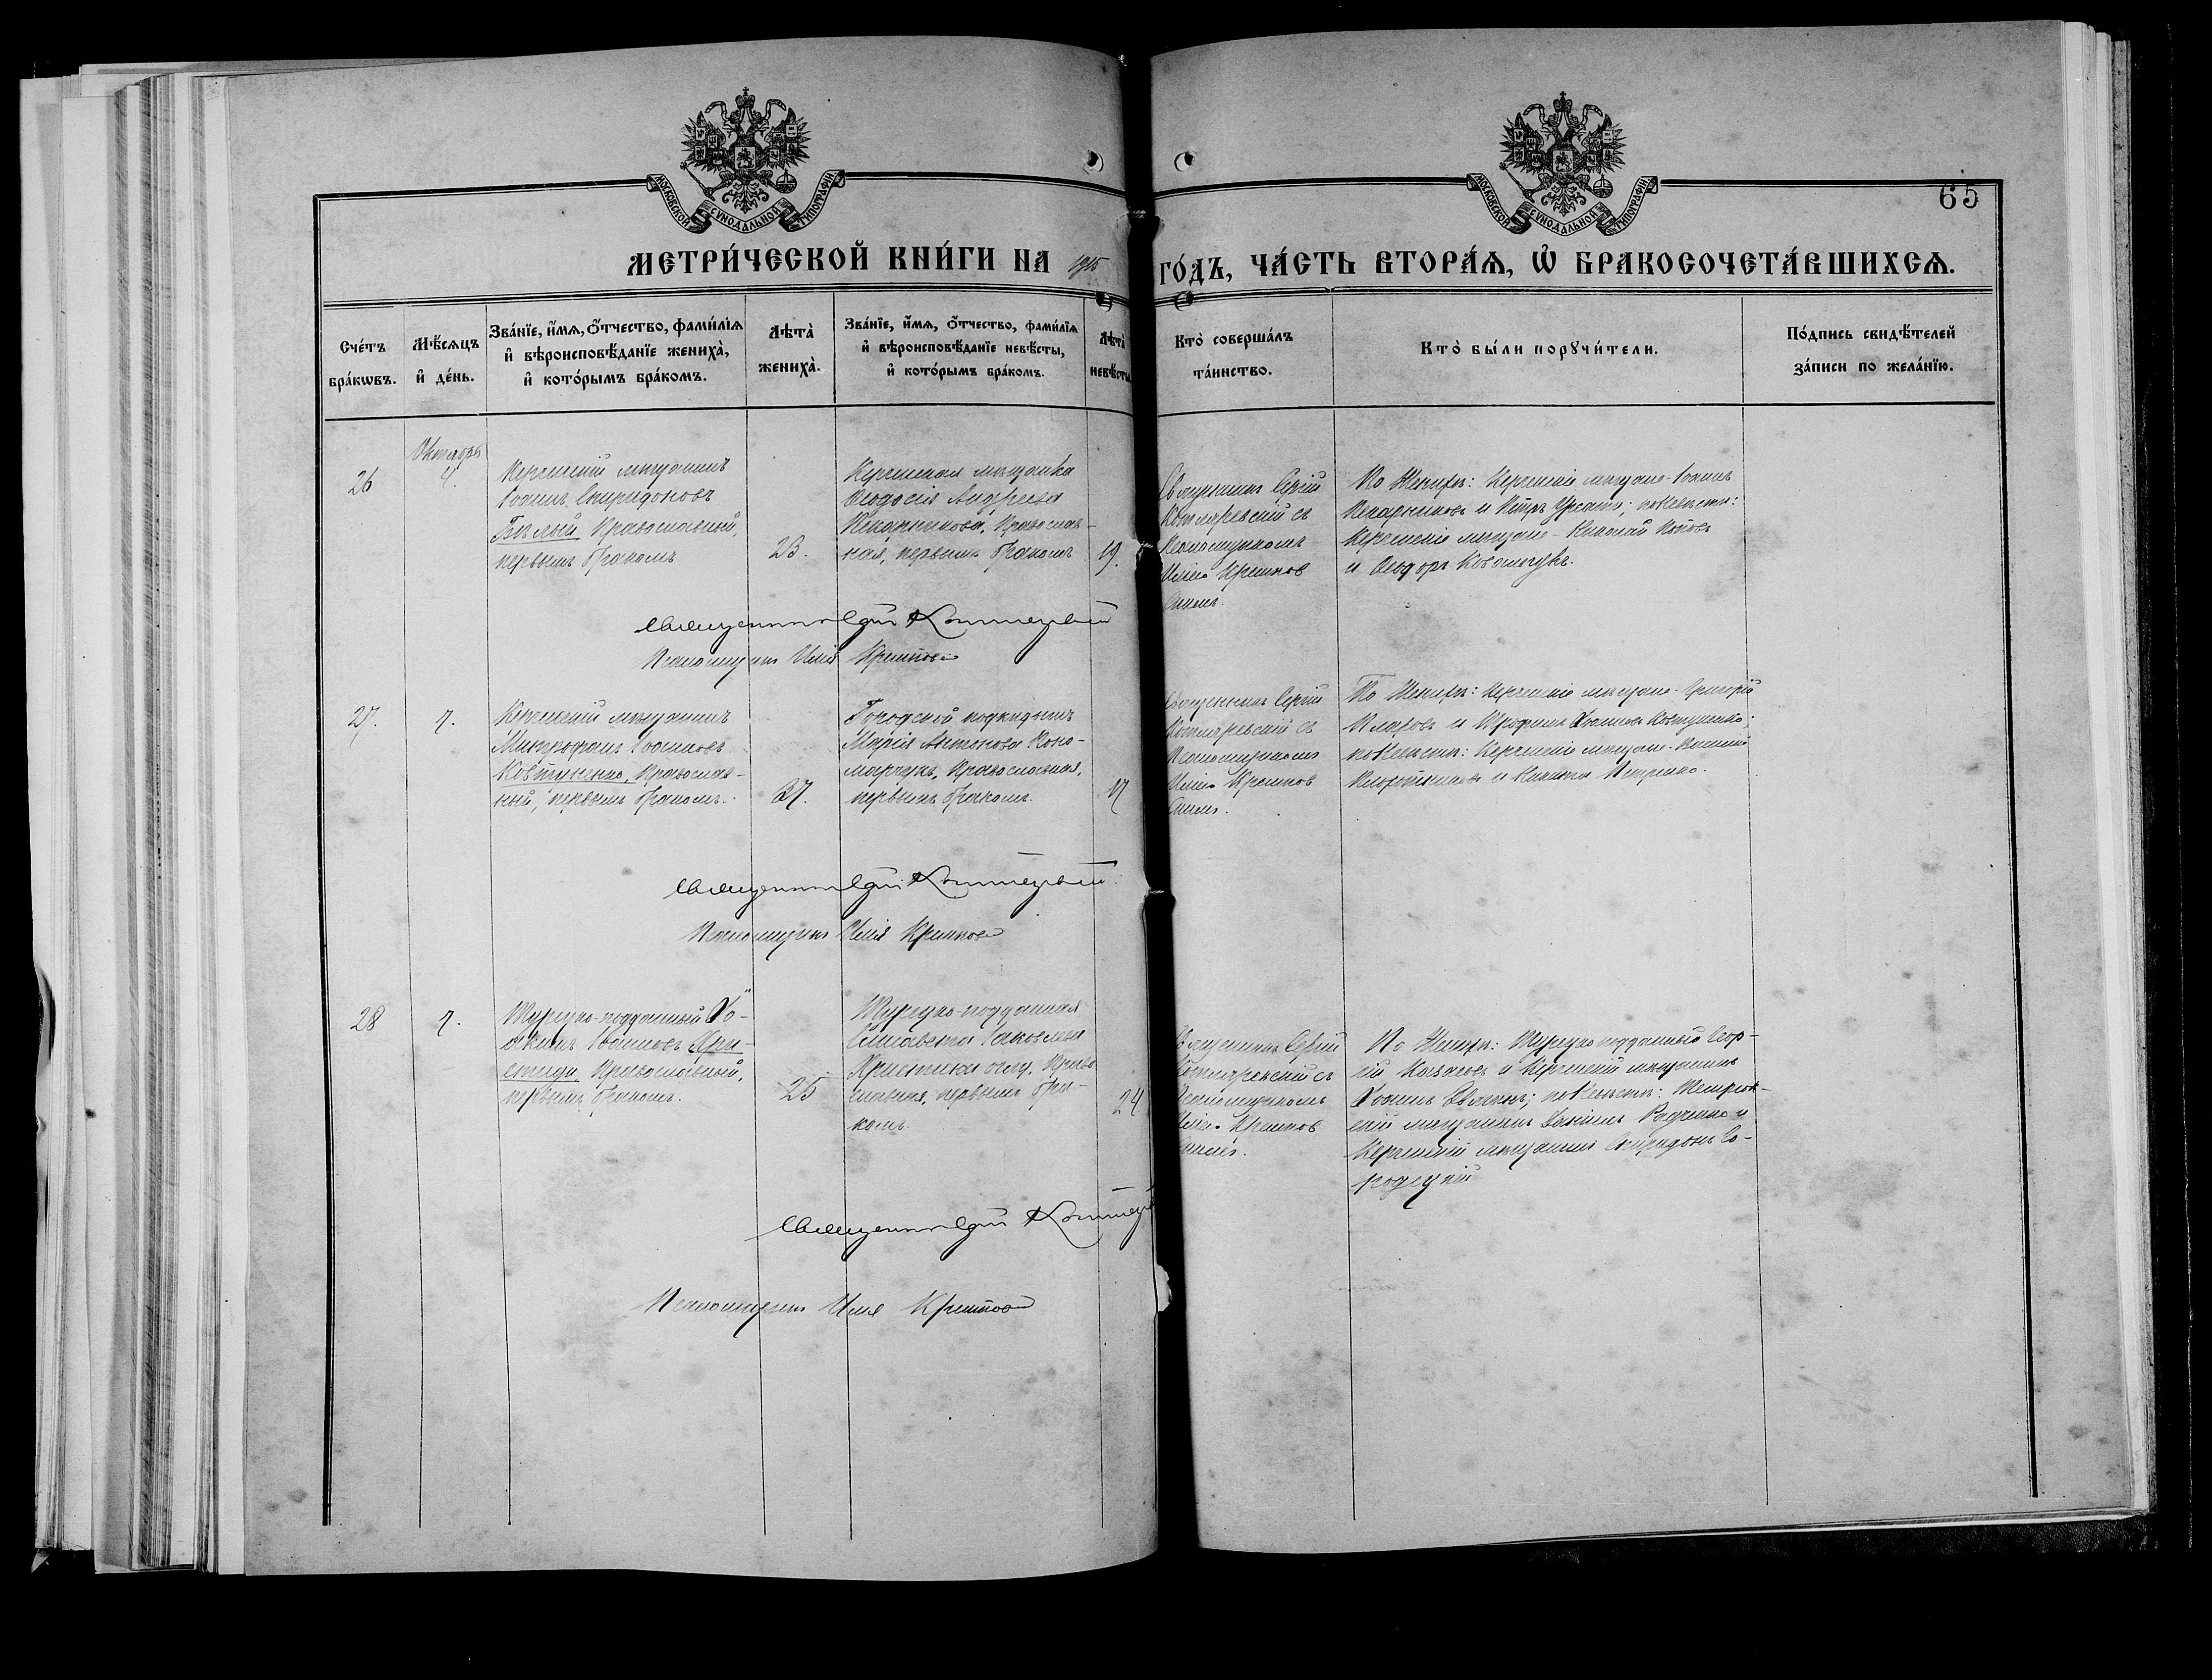 МОСКОВСКОЙ СУНОДАЛЬНОЙ ТИПОГРАФІИ
МОСКОВСКОЙ СУНОДАЛЬНОЙ ТИПОГРАФІИ
65
МЕТРИ́ЧЕСКОЙ КНИ́ГИ НА 1915 ГО́ДЪ, ЧА́СТЬ ВТОРА́Ѧ, Ѽ БРАКОСОЧЕТА́ВШИХСѦ.
Сче́тъ бра́кѡвъ.
Мѣ́сѧцъ и҆ де́нь.
Зва́нїе, и҆́мѧ, ѻ҆́тчество, фами́лїѧ
и҆ вѣроисповѣ́данїе жениха̀,
и҆ кото́рымъ бра́комъ.
Лѣта̀ жениха̀.
Зва́нїе, и҆́мѧ, ѻ҆́тчество, фами́лїѧ
и҆ вѣроисповѣ́данїе невѣ́сты,
и҆ кото́рымъ бра́комъ.
Лѣта̀ невѣ́сты.
Кто̀ соверша́лъ
та́инство.
Кто̀ бы́ли порꙋчи́тели.
По́дпись свидѣ́телей
за́писи по жела́нїю.
26
Октябрь
4.
Керченскій мѣщанинъ
Іоаннъ Спиридоновъ
Бѣлый, Православный,
первымъ бракомъ
23.
Керченская мѣщанка
Ѳеодосія Андреева
Пекарникова, Православ-
ная, первымъ бракомъ
19.
Священникъ Сергій
Котляревскій съ
Псаломщикомъ
Иліею
По Женихѣ: Керченскіе мѣщане Іоаннъ
Пекарниковъ и Петръ; по Невѣстѣ:
Керченскіе мѣщане - Николай Поповъ
и Ѳеодоръ
Священникъ Сергій Котляревскій
Псаломщикъ Илія
27.
7.
Керченскій мѣщанинъ
Митрофанъ Іоанновъ
Ковтуненко, Православ-
ный, первымъ бракомъ.
27.
Городской подкидышъ
Марія Антонова Поно-
марчукъ, Православная,
первымъ бракомъ.
17
Священникъ Сергій
Котляревскій съ
Псаломщикомъ
Иліею
По Женихѣ: Керченскіе мѣщане - Григорій
по Невѣстѣ: Керченскіе мѣщане - Василій
и Никита Петренко.
Священникъ Сергій Котляревскій
Псаломщикъ Илія
28
7.
Турецко-подданный Іо-
акимъ Іоанновъ Хри-
стиди, Православный,
первымъ бракомъ.
25
Турецко-подданная
Елисавета Іаковлева
Православная, первымъ бра-
комъ.
24
Священникъ Сергій
Котляревскій съ
Псаломщикомъ
Иліею
По Женихѣ: Турецко-подданный Геор-
гій и Керченскій мѣщанинъ
Іоаннъ; по Невѣстѣ: Темрюк-
скій мѣщанинъ Радченко и
Керченскій мѣщанинъ Спиридонъ
Священникъ Сергій
Псаломщикъ Илія